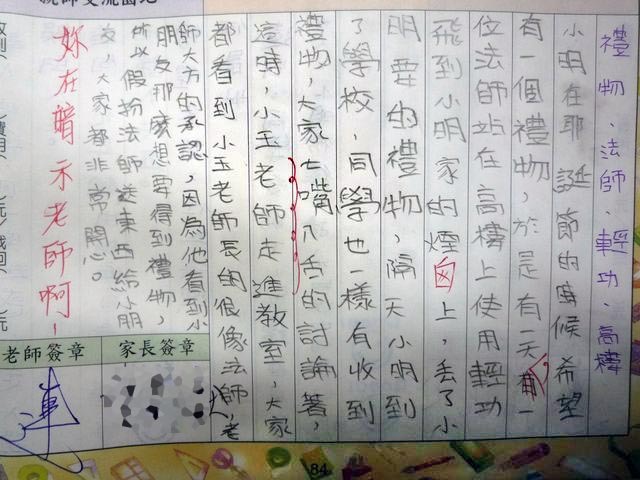 禮物、法師、輕功、高樓
小明在耶誕節的時候希望
有一個禮物，於是有一天有一
位法師站在高樓上使用輕功
飛到小明家的煙囪上，丟了小
明要的禮物，隔天小明到
了學校，同學也一樣有收到
禮物，大家七嘴八舌的討論著，
這時，小玉老師走進教室，大家
都看到小玉老師長的很像法師，老
師大方的承認，因為他看到小
朋友那麼想要得到禮物，
所以假扮法師送東西給小朋
友，大家都非常開心。
妳在暗示老師啊！
家長簽章
老師簽章
84